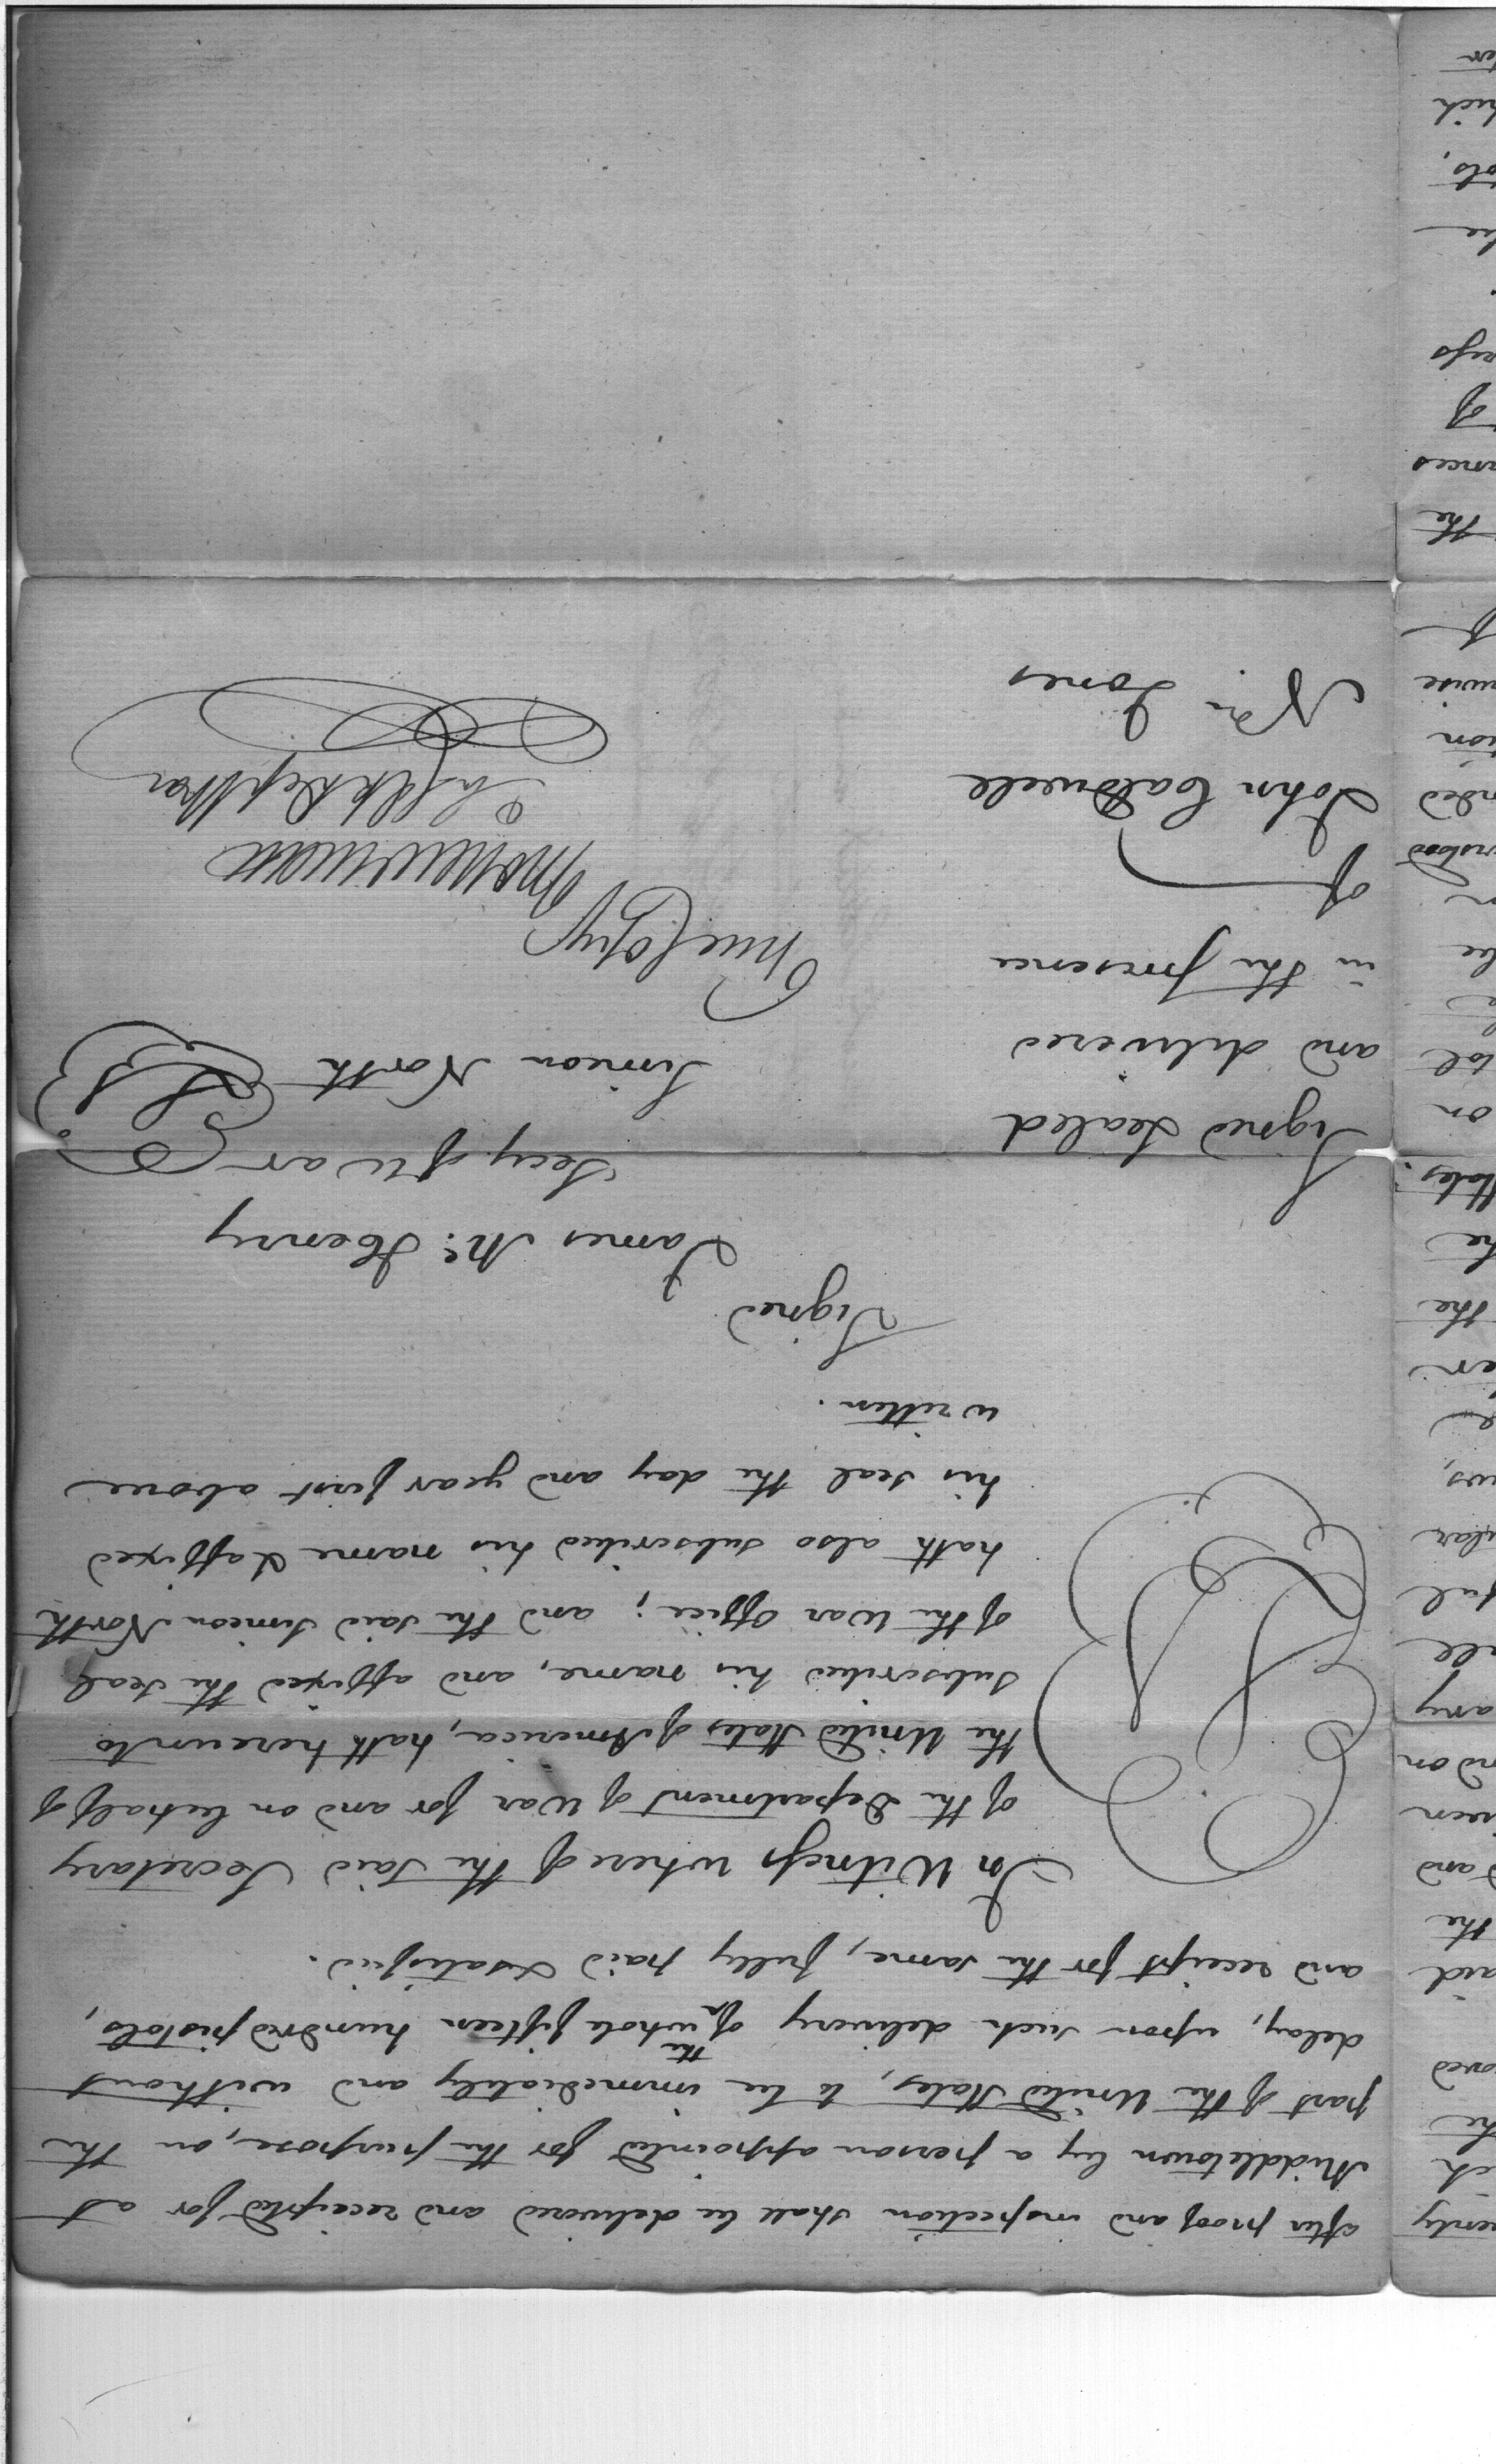 after proof and inspection shall be delivered and receipted for at
Middletown by a person appointed for the purpose, on the
part of the United States, to be immediately and without
delay, upon such delivery of the whole fifteen hundred pistols,
and receipt for the same, fully paid & satisfied.
In Witness whereof the said Secretary
of the Department of War for and on behalf of
the United States of America, hath hereunto
subscribed his name, and affixed the seal
of the War Office; and the said Simeon North
hath also subscribed his name & affixed
his seal the day and year first above
written.
Signed
James Mc. Henry
Secy of War
Signed Sealed
and delivered
in the presence
of
John Caldwell
Nn. Jones
Simeon North
LS
True Copy
Ch Clk Dep War
enty
ch
the
oved
aid
the
and
een
nd on
any
all
ful
ular
ws,
er
the
he
States.
on
tol
be
rstood
nded
tion
wise
of
the
ances
of
ress
be
tols,
hich
ter